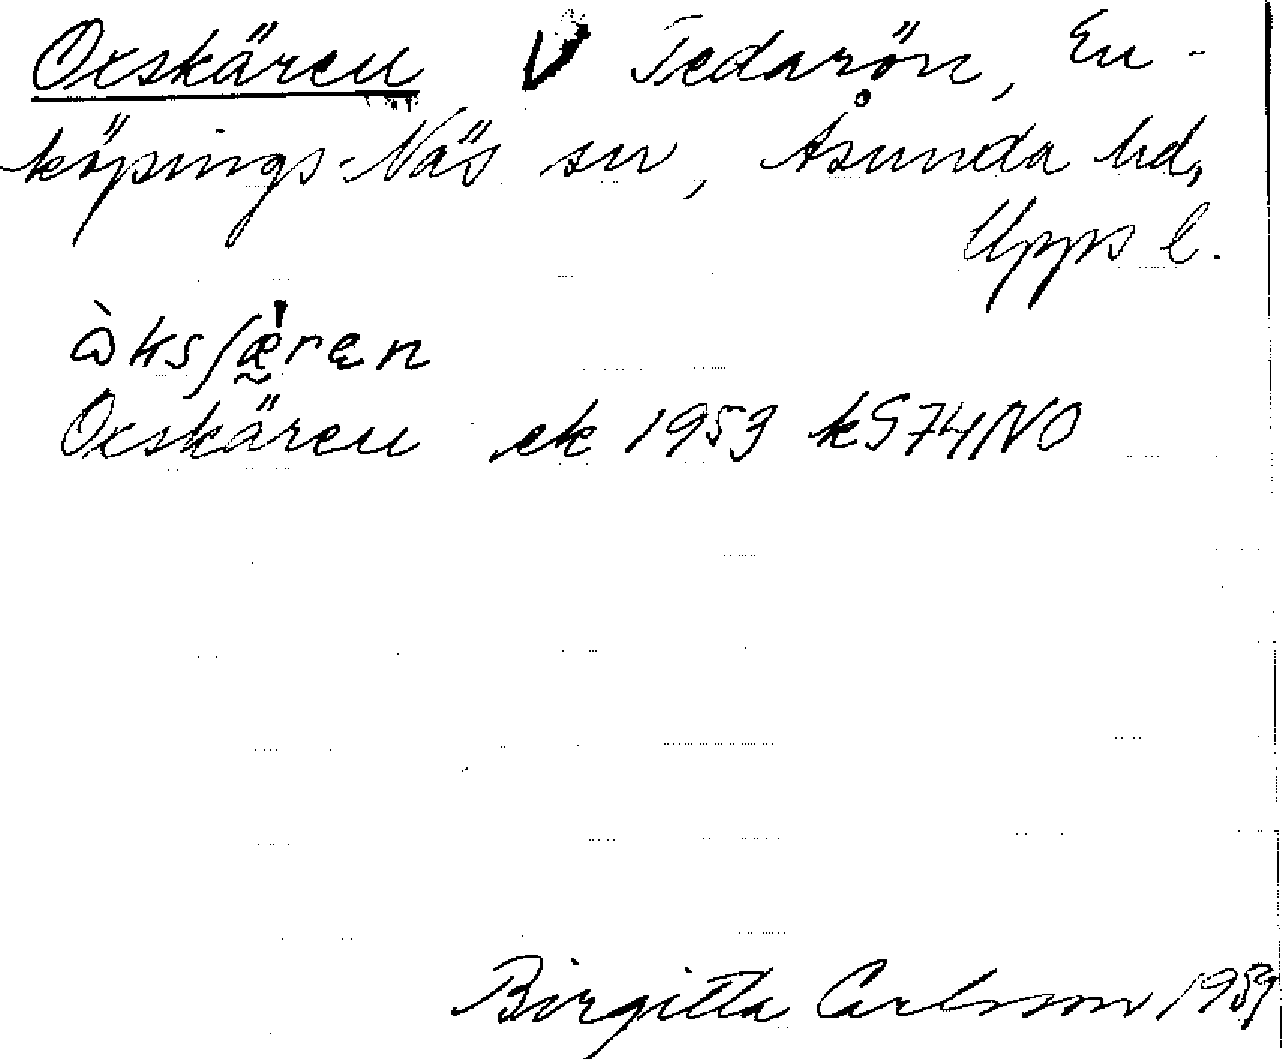 Oxskären V Tedarön, En-
köpings-Näs sn, Åsunda hd,
Upps l.
Oxskären ek 1953 k574NO
Birgitta Carlsson 1959